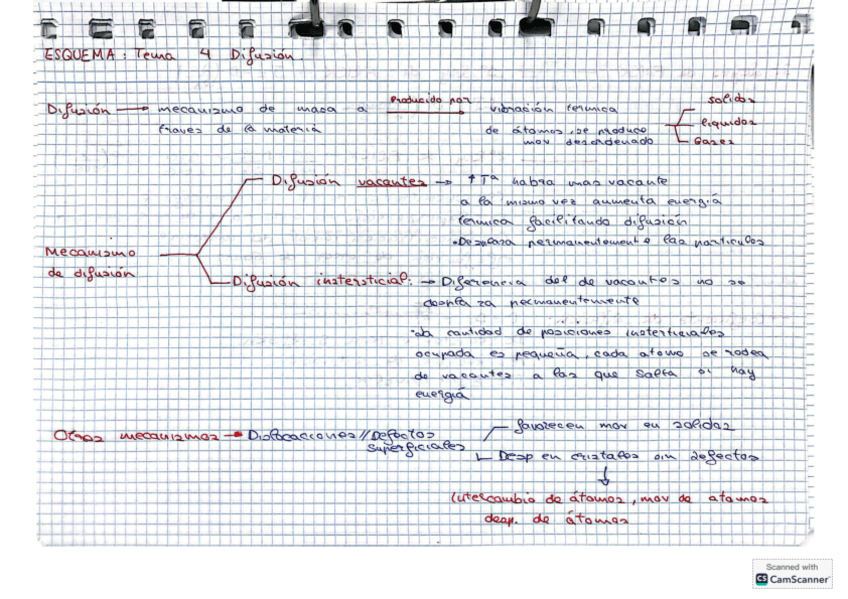 ESQUEMA: Tema 4 Difusión.
Difusión → mecanismo de masa a Producido por vibración termica solidos
traves de la materia de átomos, se produce liquidos
mov desordenado Gases
Difusión vacantes → ↑ Tª habra mas vacante
a la mismo vez aumenta energía
termica facilitando difusión
• Desplaza permanentemente las particulas
Mecanismo
de difusión
Difusión instersticial: → Diferencia del de vacantes no se
desplaza permanentemente
• La cantidad de posiciones insterticiales
ocupada es pequeña, cada atomo se rodea
de vacantes a las que salta si hay
energía
Otros mecanismos → Dislocacciones // Defectos favorecen mov en solidos
superficiales Desp en cristales sin defectos
↓
Intercambio de átomos, mov de atomos
desp. de átomos
Scanned with
CS CamScanner